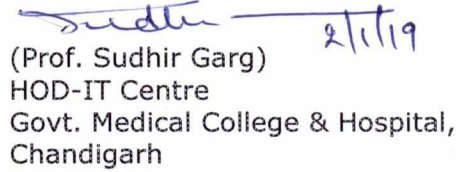 Sudhir 2/1/19
(Prof. Sudhir Garg)
HOD-IT Centre
Govt. Medical College & Hospital,
Chandigarh